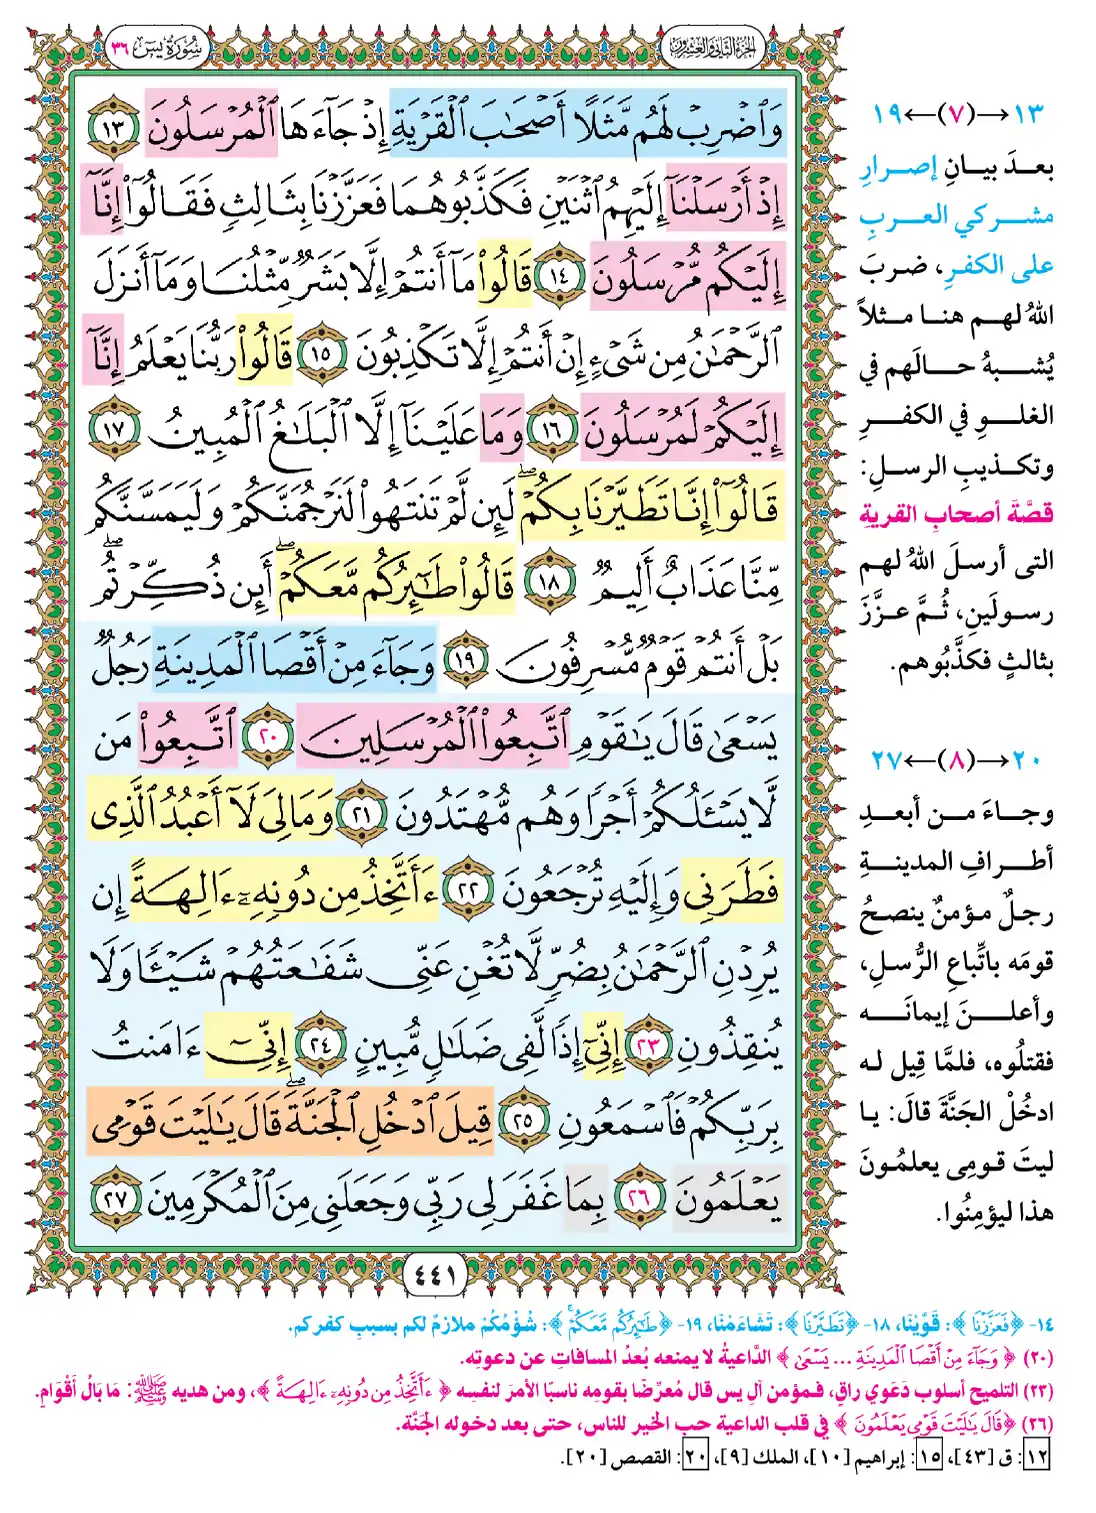 الجزء الثاني والعشرون
سورة يس ٣٦
وَٱضْرِبْ لَهُم مَّثَلًا أَصْحَٰبَ ٱلْقَرْيَةِ إِذْ جَآءَهَا ٱلْمُرْسَلُونَ ١٣
إِذْ أَرْسَلْنَآ إِلَيْهِمُ ٱثْنَيْنِ فَكَذَّبُوهُمَا فَعَزَّزْنَا بِثَالِثٍ فَقَالُوٓا۟ إِنَّآ
إِلَيْكُم مُّرْسَلُونَ ١٤ قَالُوا۟ مَآ أَنتُمْ إِلَّا بَشَرٌ مِّثْلُنَا وَمَآ أَنزَلَ
ٱلرَّحْمَٰنُ مِن شَىْءٍ إِنْ أَنتُمْ إِلَّا تَكْذِبُونَ ١٥ قَالُوا۟ رَبُّنَا يَعْلَمُ إِنَّآ
إِلَيْكُمْ لَمُرْسَلُونَ ١٦ وَمَا عَلَيْنَآ إِلَّا ٱلْبَلَٰغُ ٱلْمُبِينُ ١٧
قَالُوٓا۟ إِنَّا تَطَيَّرْنَا بِكُمْ ۖ لَئِن لَّمْ تَنتَهُوا۟ لَنَرْجُمَنَّكُمْ وَلَيَمَسَّنَّكُم
مِّنَّا عَذَابٌ أَلِيمٌ ١٨ قَالُوا۟ طَٰٓئِرُكُم مَّعَكُمْ ۖ أَئِن ذُكِّرْتُم ۖ
بَلْ أَنتُمْ قَوْمٌ مُّسْرِفُونَ ١٩ وَجَآءَ مِنْ أَقْصَا ٱلْمَدِينَةِ رَجُلٌ
يَسْعَىٰ قَالَ يَٰقَوْمِ ٱتَّبِعُوا۟ ٱلْمُرْسَلِينَ ٢٠ ٱتَّبِعُوا۟ مَن
لَّا يَسْـَٔلُكُمْ أَجْرًا وَهُم مُّهْتَدُونَ ٢١ وَمَا لِىَ لَآ أَعْبُدُ ٱلَّذِى
فَطَرَنِى وَإِلَيْهِ تُرْجَعُونَ ٢٢ ءَأَتَّخِذُ مِن دُونِهِۦٓ ءَالِهَةً إِن
يُرِدْنِ ٱلرَّحْمَٰنُ بِضُرٍّ لَّا تُغْنِ عَنِّى شَفَٰعَتُهُمْ شَيْـًٔا وَلَا
يُنقِذُونِ ٢٣ إِنِّىٓ إِذًا لَّفِى ضَلَٰلٍ مُّبِينٍ ٢٤ إِنِّىٓ ءَامَنتُ
بِرَبِّكُمْ فَٱسْمَعُونِ ٢٥ قِيلَ ٱدْخُلِ ٱلْجَنَّةَ ۖ قَالَ يَٰلَيْتَ قَوْمِى
يَعْلَمُونَ ٢٦ بِمَا غَفَرَ لِى رَبِّى وَجَعَلَنِى مِنَ ٱلْمُكْرَمِينَ ٢٧
٤٤١
١٣→(٧)←١٩
بعدَ بيانِ إصرارِ
مشركي العربِ
على الكفرِ، ضربَ
اللهُ لهم هنا مثلاً
يُشبهُ حالَهم في
الغلوِ في الكفرِ
وتكذيبِ الرسلِ:
قصَّةَ أصحابِ القريةِ
التى أرسلَ اللهُ لهم
رسولَينِ، ثُمَّ عزَّزَ
بثالثٍ فكذَّبُوهم.
٢٠→(٨)←٢٧
وجاءَ من أبعدِ
أطرافِ المدينةِ
رجلٌ مؤمنٌ ينصحُ
قومَه باتِّباعِ الرُّسلِ،
وأعلنَ إيمانَه
فقتلُوه، فلمَّا قِيل له
ادخُلْ الجَنَّةَ قالَ: يا
ليتَ قومِى يعلمُونَ
هذا ليؤمِنُوا.
١٤- ﴿فَعَزَّزْنَا﴾: قَوَّيْنَا، ١٨- ﴿تَطَيَّرْنَا﴾: تَشَاءَمْنَا، ١٩- ﴿طَٰٓئِرُكُم مَّعَكُمْ﴾: شُؤْمُكُمْ ملازمٌ لكم بسببِ كفركم.
(٢٠) ﴿وَجَآءَ مِنْ أَقْصَا ٱلْمَدِينَةِ ... يَسْعَىٰ﴾ الدَّاعيةُ لا يمنعه بُعدُ المسافاتِ عن دعوتِه.
(٢٣) التلميح أسلوب دَعَوي راقٍ، فمؤمن آلِ يس قال مُعرِّضًا بقومِه ناسبًا الأمرَ لنفسِه ﴿ءَأَتَّخِذُ مِن دُونِهِۦٓ ءَالِهَةً﴾، ومن هديه ﷺ: مَا بَالُ أَقْوَامٍ.
(٢٦) ﴿قَالَ يَٰلَيْتَ قَوْمِى يَعْلَمُونَ﴾ في قلب الداعية حب الخير للناس، حتى بعد دخوله الجَنَّة.
١٢: ق [٤٣]، ١٥: إبراهيم [١٠]، الملك [٩]، ٢٠: القصص [٢٠].